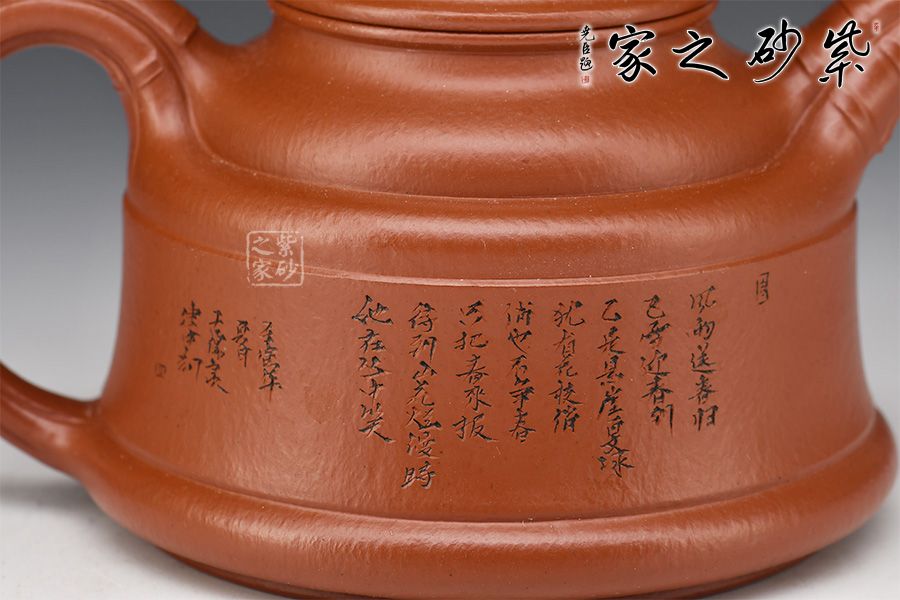 紫砂之家
尧臣题
紫砂之家
风雨送春归
飞雪迎春到
已是悬崖百丈冰
犹有花枝俏
俏也不争春
只把春来报
待到山花烂漫時
他在丛中笑
壬寅年